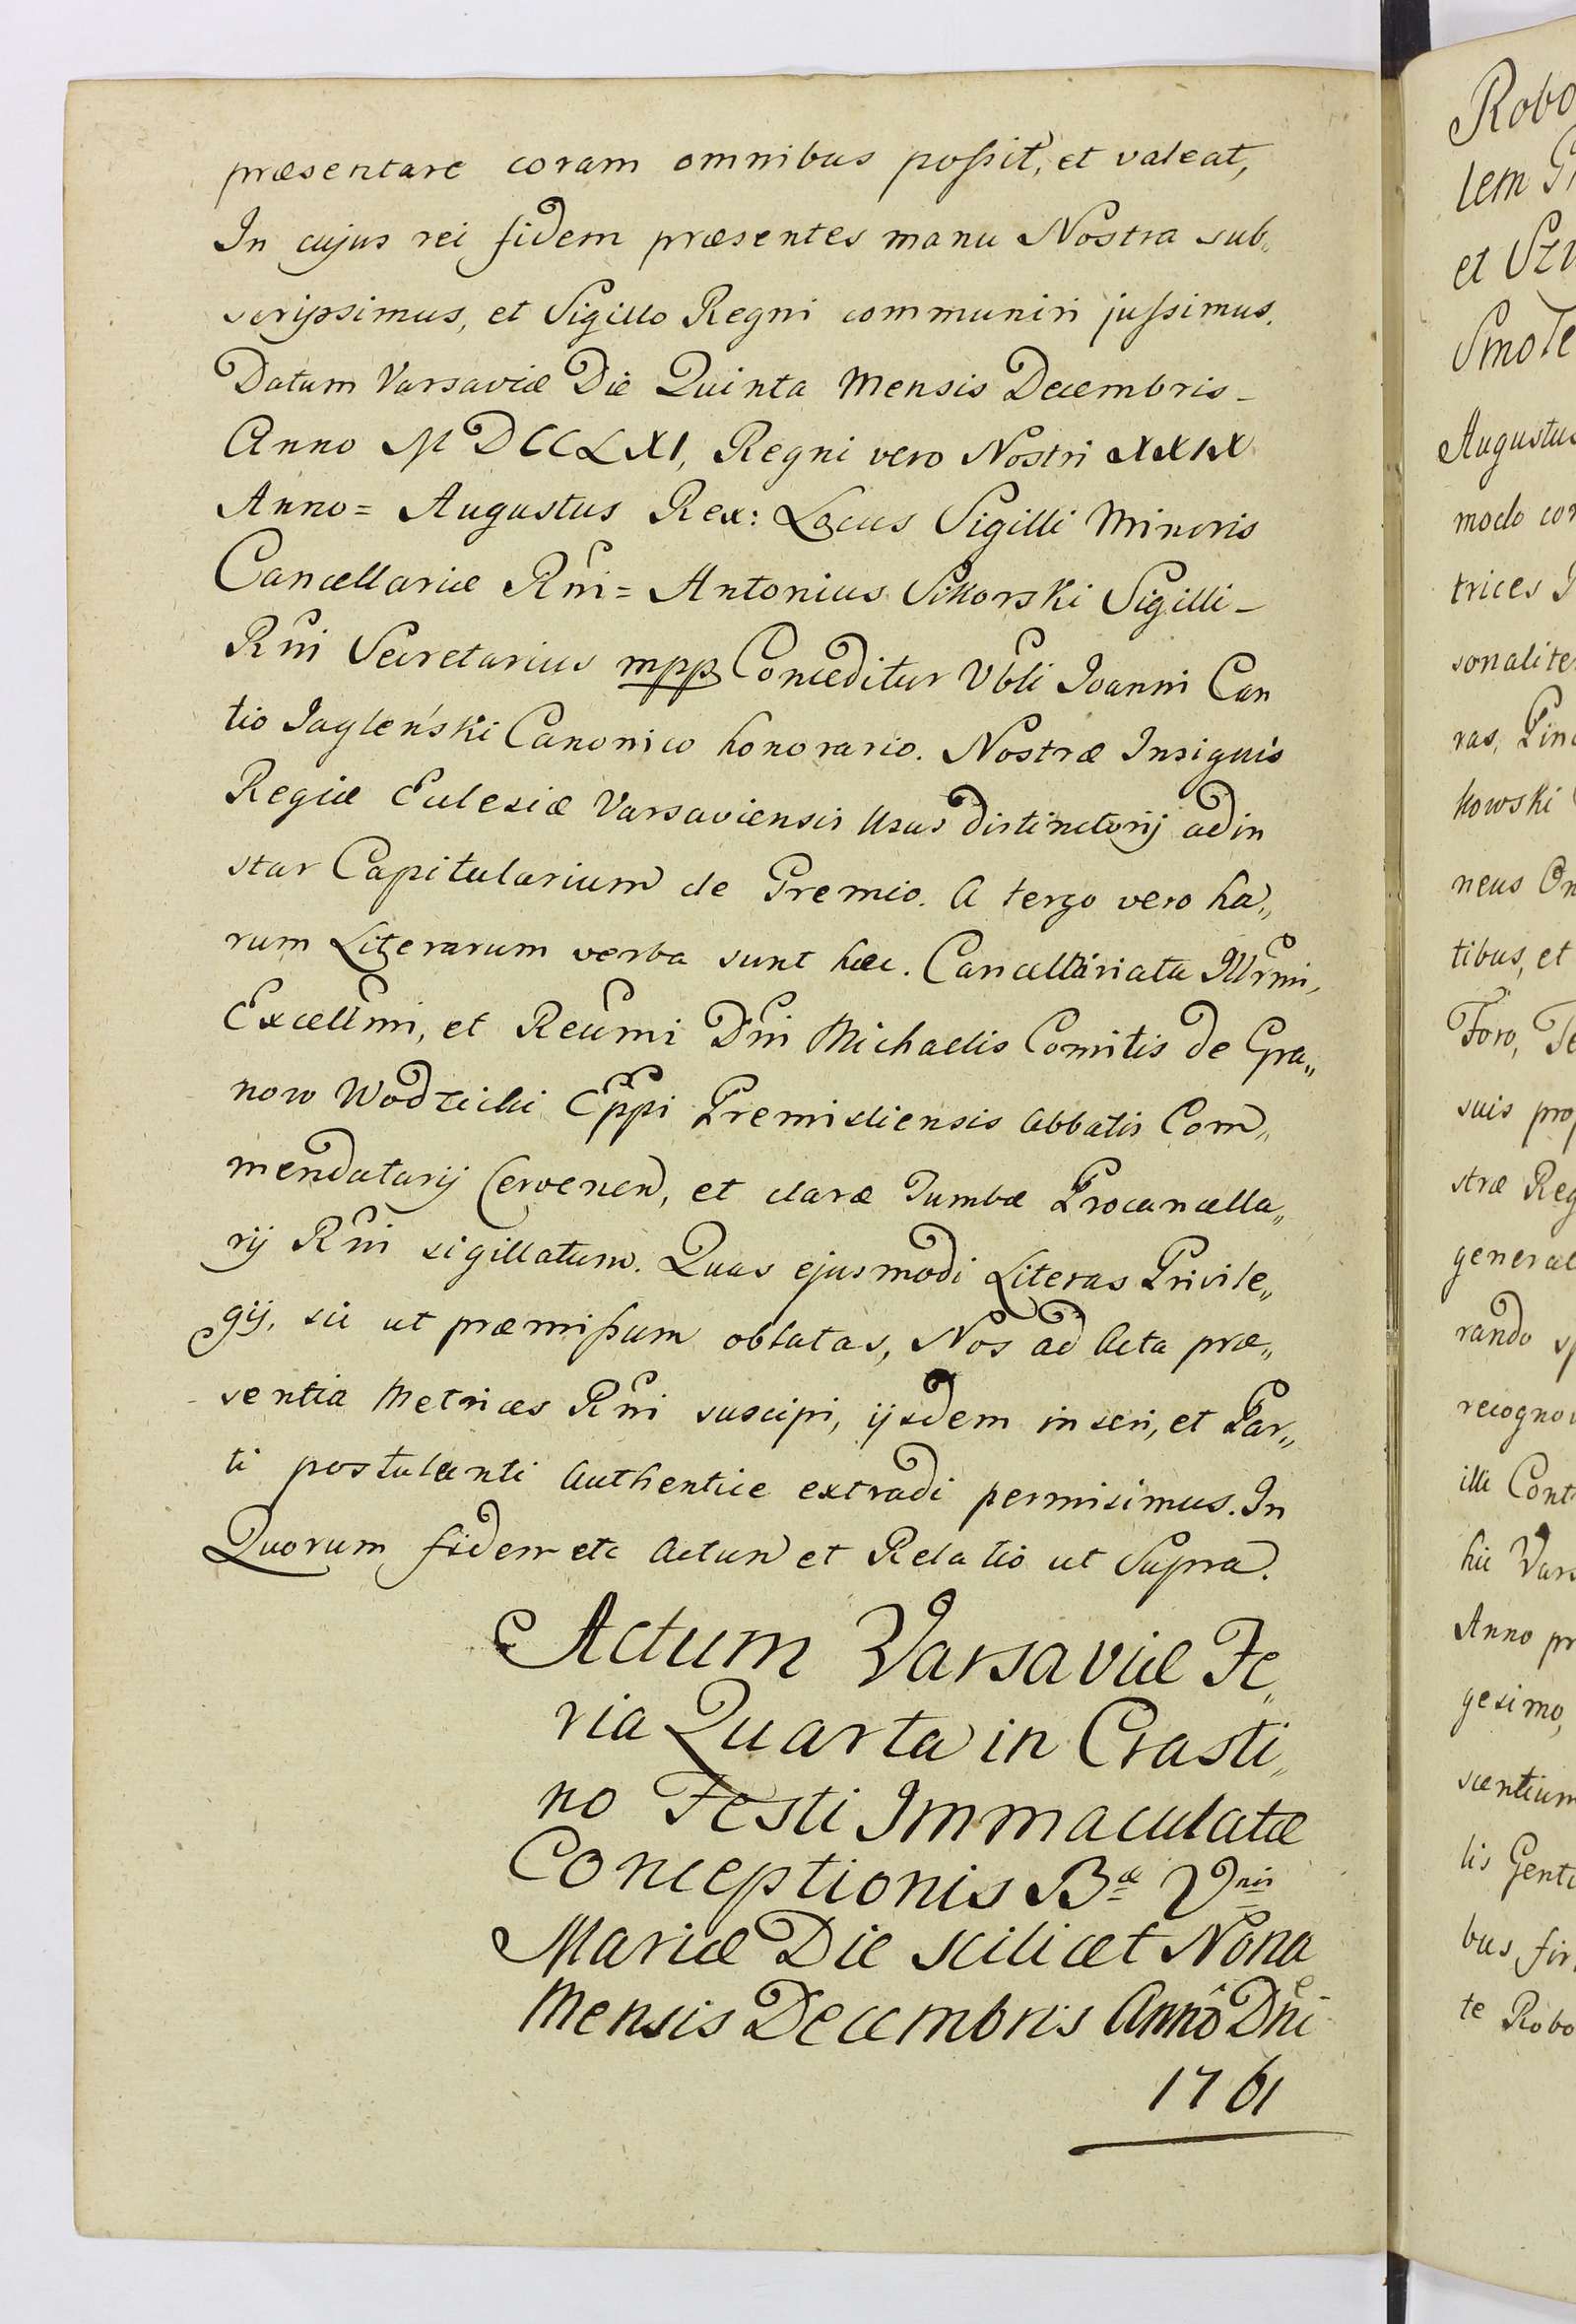 præsentare coram omnibus possit, et valeat,
In cujus rei fidem præsentes manu Nostra sub„
scripsimus, et Sigillo Regni communiri jussimus.
Datum Varsaviæ Die Quinta Mensis Decembris_
Anno MDCCLXI, Regni vero Nostri XXIX
Anno= Augustus Rex: Locus Sigilli Minoris
Cancellariæ Rni= Antonius Sikorski Sigilli_
Rni Secretarius mpp Conceditur Vbli Joanni Can
tio Jagleński Canonico honorario. Nostræ Insignis
Regiæ Ecclesiæ Varsaviensis Usus distinctorij ad in
star Capitularium de Gremio. A tergo vero ha„
rum Literarum verba sunt hæc. Cancellariatu Illrmi,
Excellmi, et Reumi Dni Michaelis Comitis de Gra„
now Wodzicki Eppi Premisliensis Abbatis Com„
mendatarij Cervenen, et claræ Tumbæ Procancella„
rij Rni sigillatum. Quas ejusmodi Literas Privile„
gij, sic ut præmissum oblatas, Nos ad Acta præ„
sentia Metrices Rni suscipi, ijsdem inseri, et Par„
ti postulanti Authentice extradi permisimus. In
Quorum fidem etc Actum et Relatio ut Supra.
Actum Varsaviæ Fe„
ria Quarta in Crasti„
no Festi Immaculatæ
Conceptionis Bæ Vnis
Mariæ Die scilicet Nona
Mensis Decembris Annô Dni
1761
Robo
lem
et
Smole
Augustus
modo con
trices
sonalite
ras,
kowski
neus
tibus, et
Foro,
suis prop
stræ Reg
general
rando
recogno
illi Cont
hic Vars
Anno pr
gesimo,
scentium
lis Genti
bus fir
te Robo